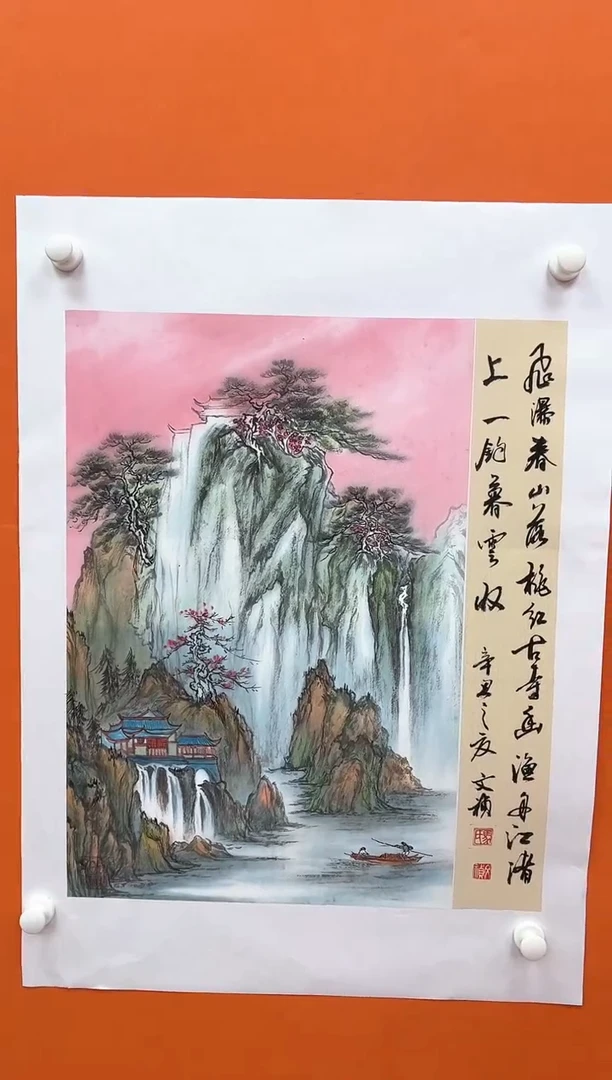 飛瀑春山落桃紅古寺幽漁舟江渚
上一釣暮雲收
辛丑之夜文禎